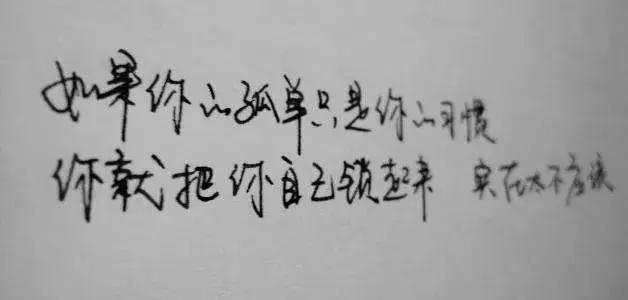 如果你的孤单只是你的习惯
你就把你自己锁起来 实在太不应该